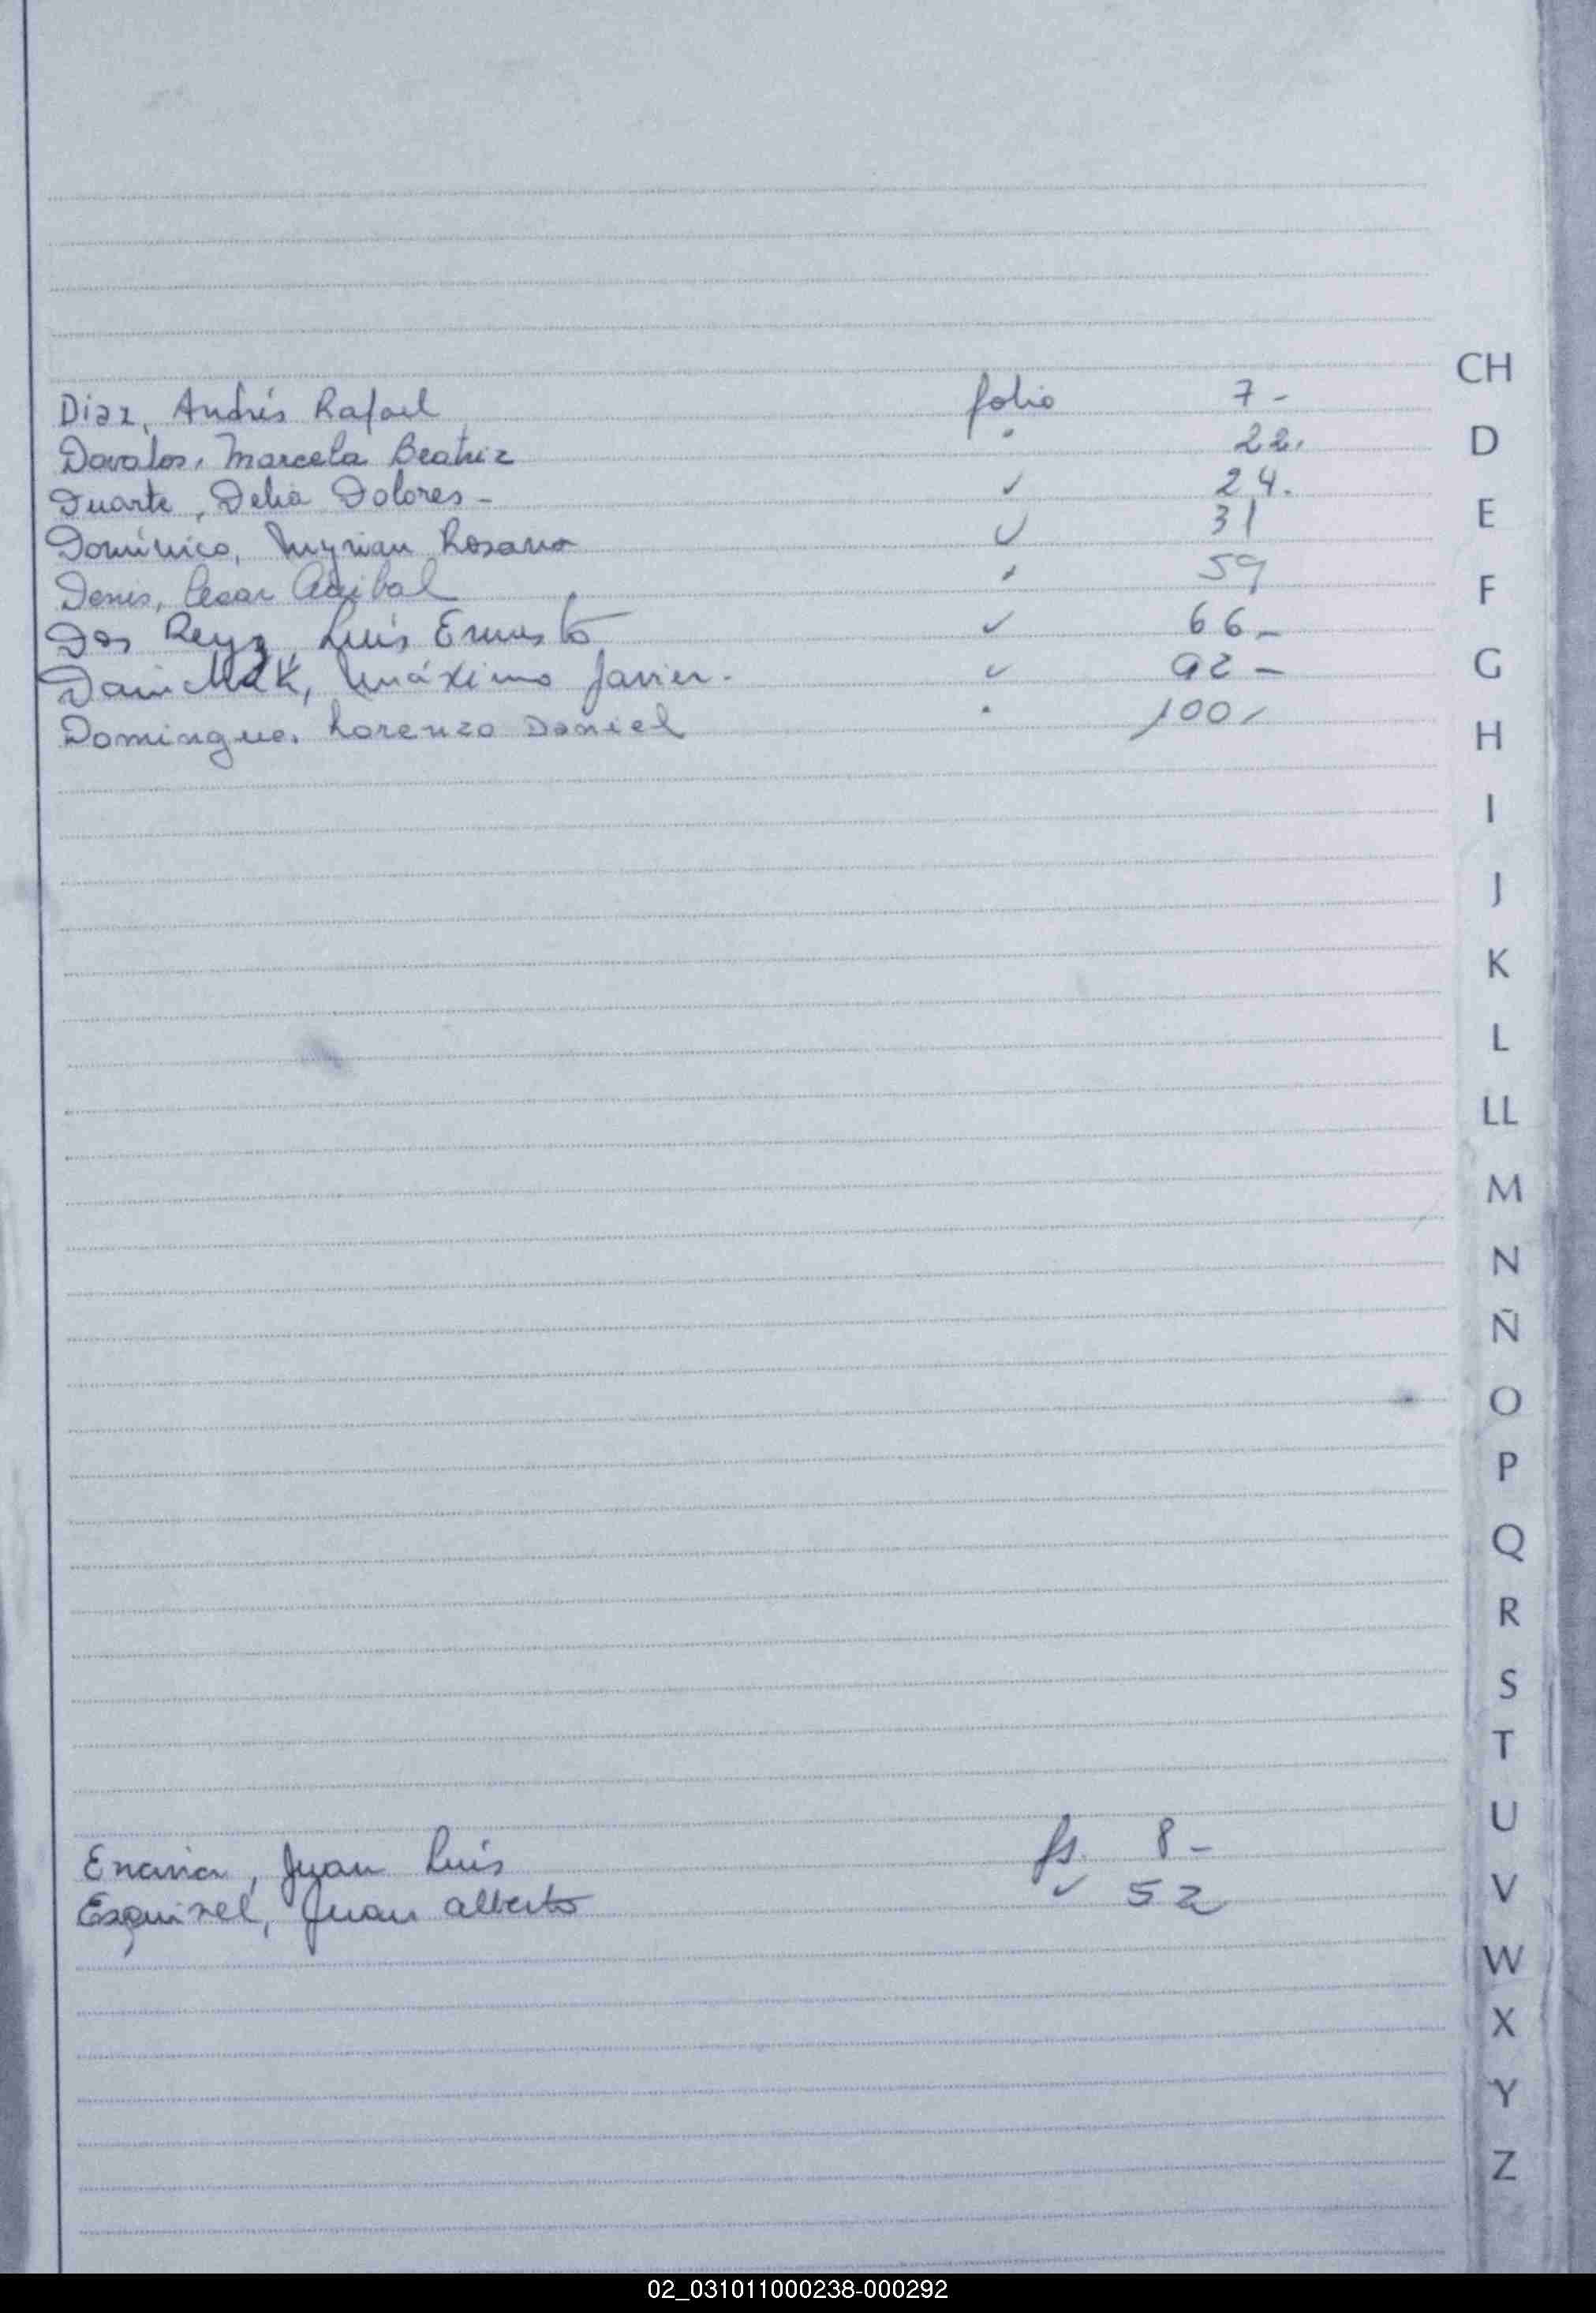 Diaz, Andrés Rafael folio 7-
Davalos, Marcela Beatriz 22.
Duarte, Delia Dolores - ✓ 24.
Domínico, Myrian Rosana ✓ 31
Denis, Cesar Anibal 59
Dos Reyz, Luis Ernesto ✓ 66-
Máximo Javier. ✓ 92-
Domingue, Lorenzo Daniel 100
Juan Luis fs. 8-
Esquivel, Juan Alberto ✓ 52
CH
D
E
F
G
H
I
J
K
L
LL
M
N
Ñ
O
P
Q
R
S
T
U
V
W
X
Y
Z
02_031011000238-000292